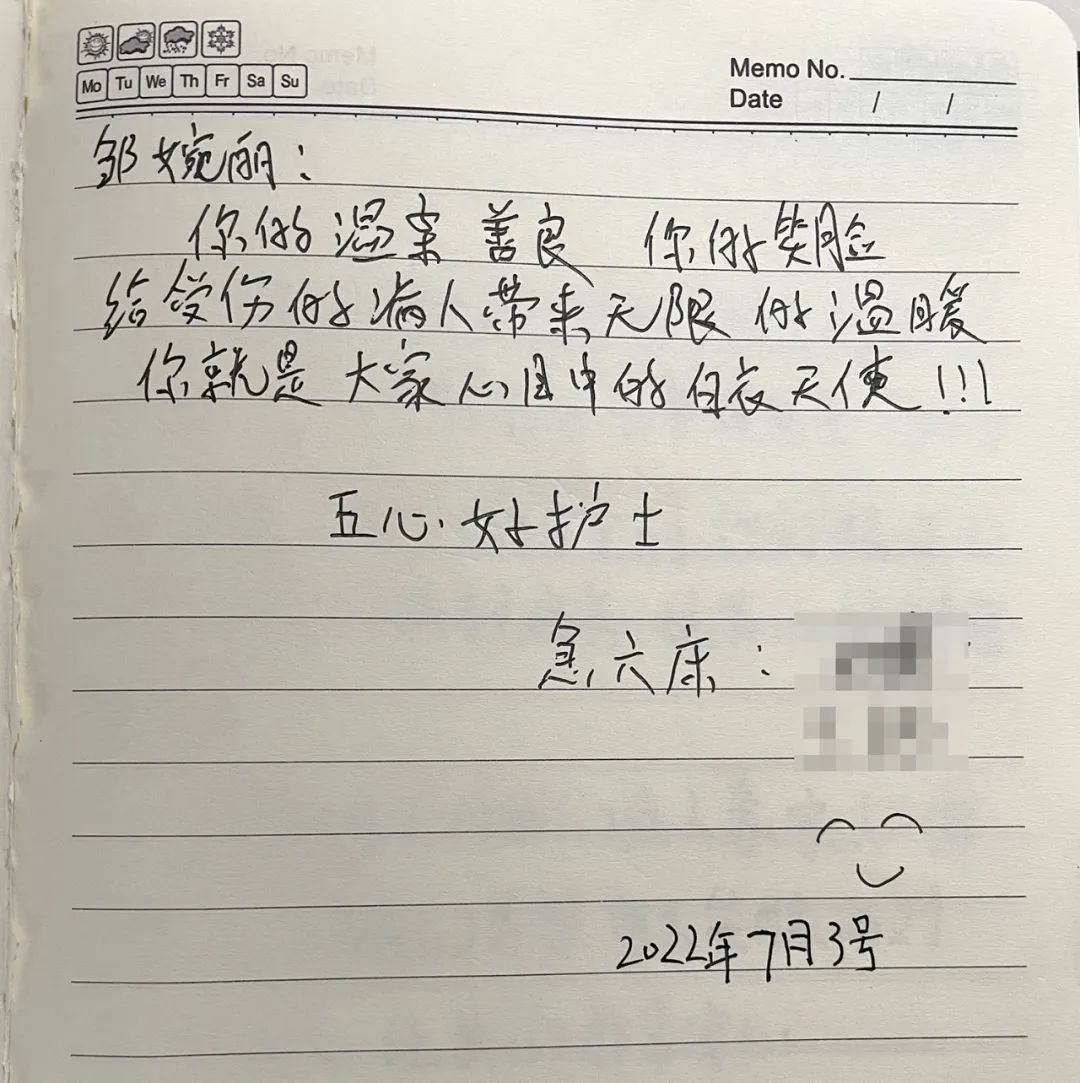 Mo Tu We Th Fr Sa Su
Memo No.
Date / /
邹婉丽：
你的温柔 善良 你的笑脸
给受伤的病人带来无限的温暖
你就是大家心目中的白衣天使!!!
五心·好护士
急六床：
2022年7月3号